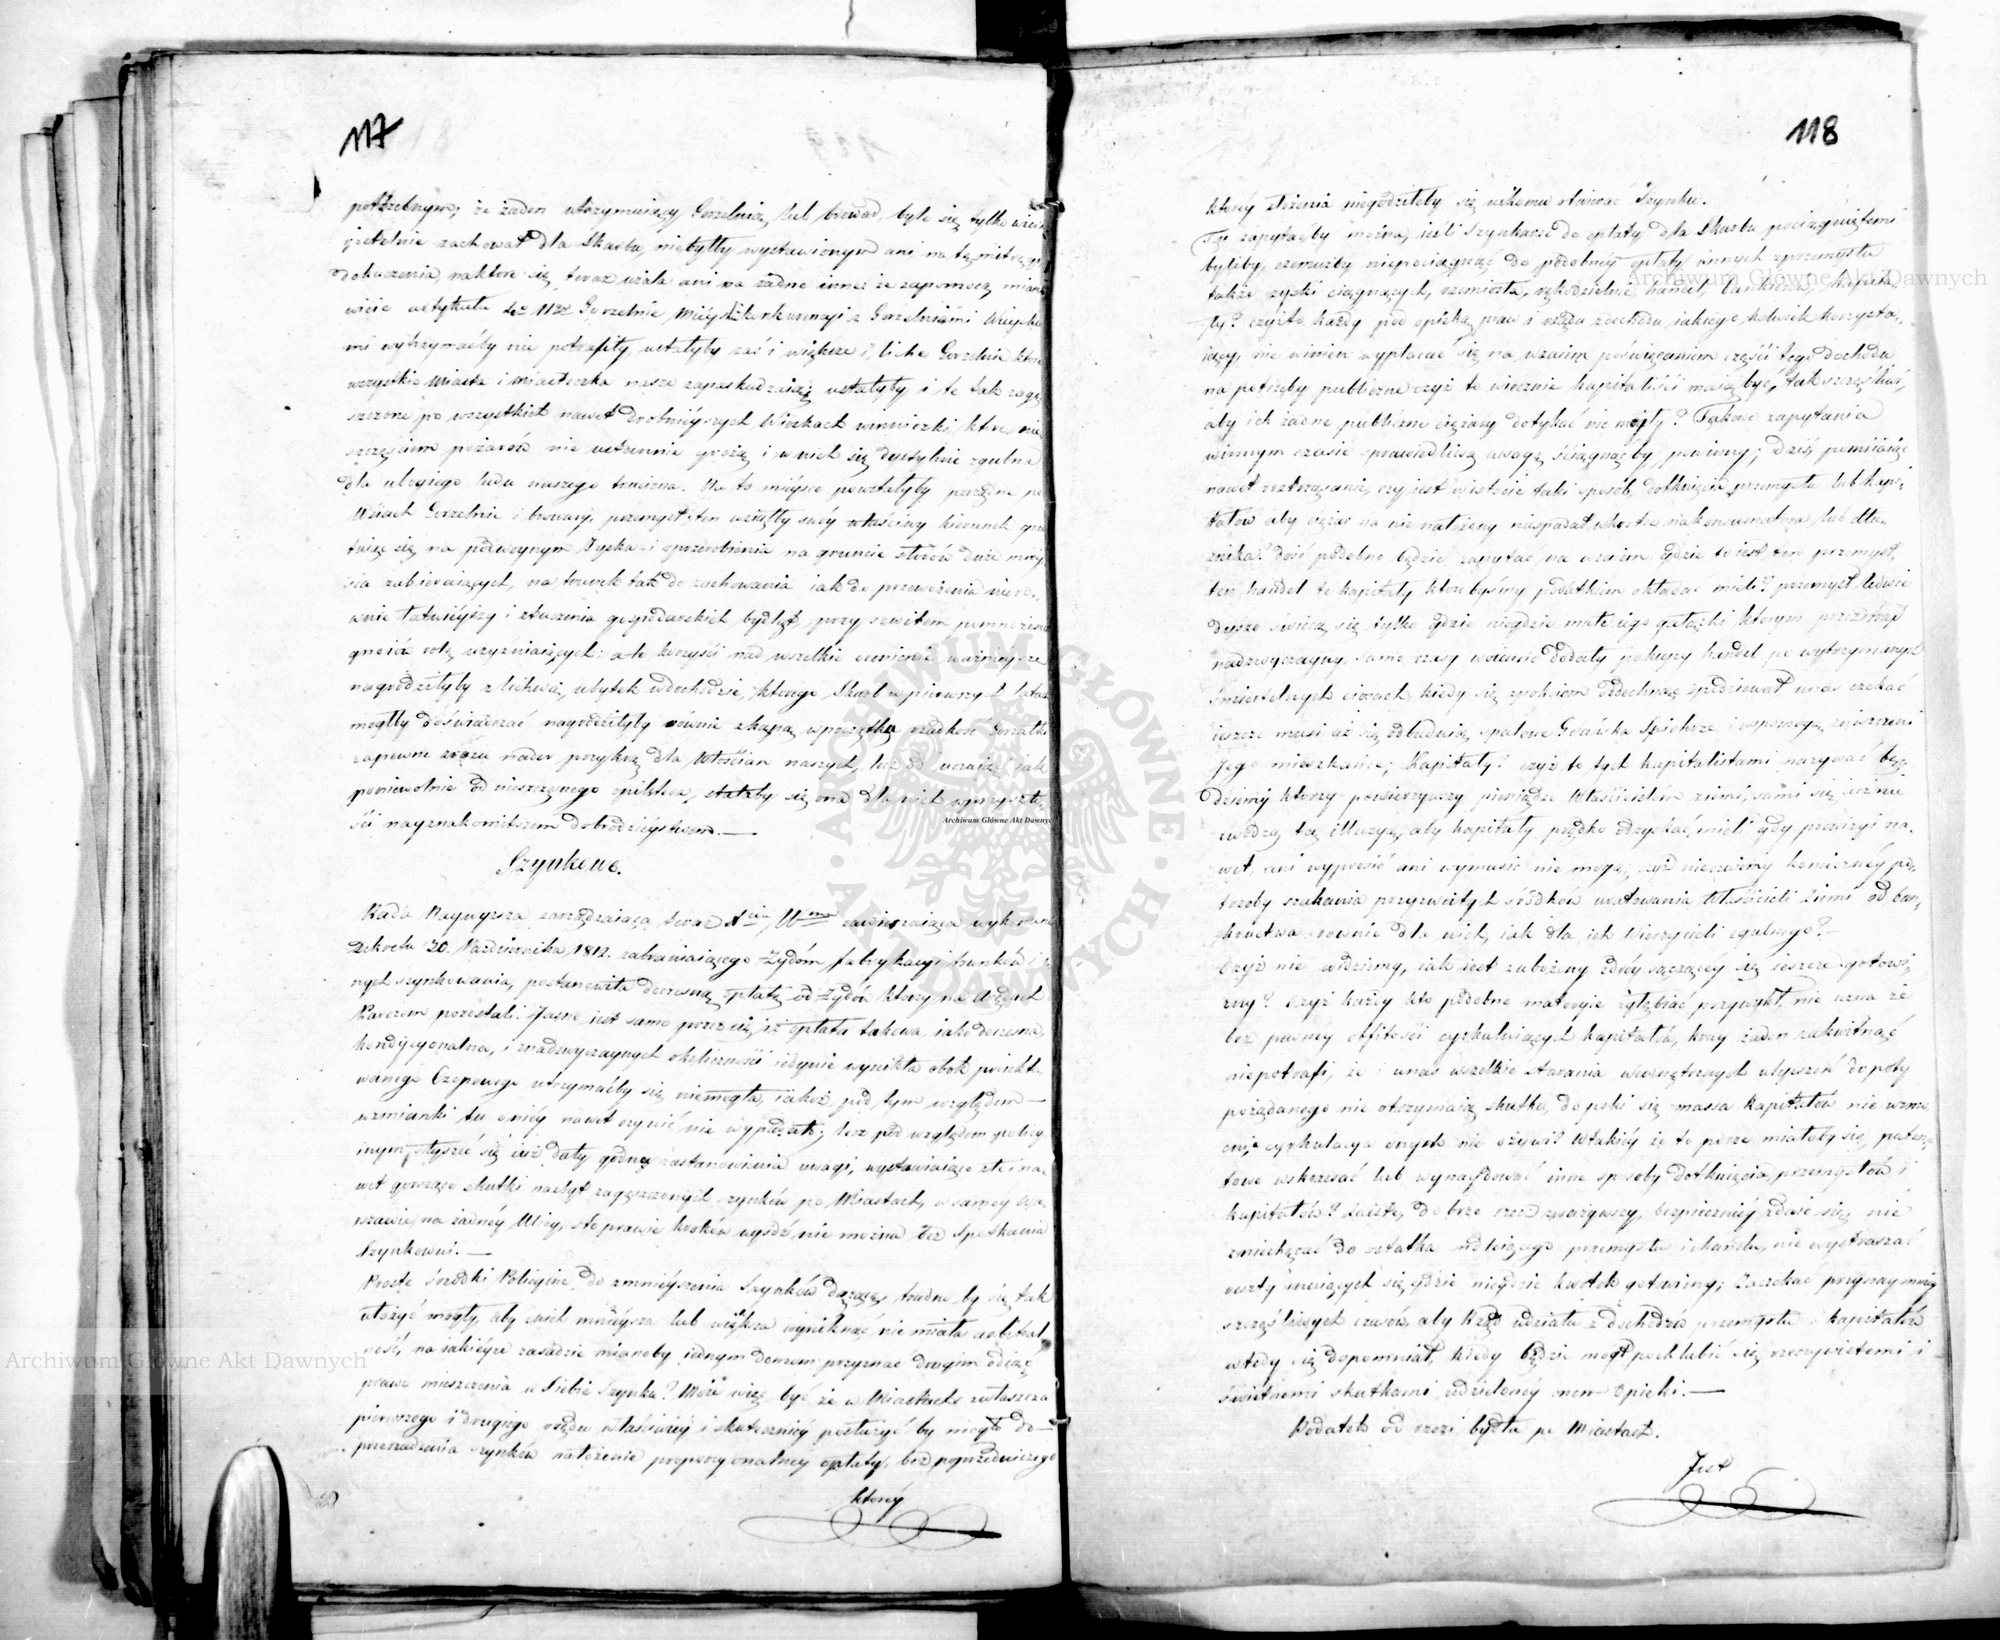 117
potrzebnym; że żaden utrzymujący Gorzelnią lub browar, byle się tylko
rzetelnie zachował dla Skarbu, niebyłby wystawionym ani na tę mitręgę
dokuczenia, na które się teraz użala ani na żadne inne; że zapomocą miano
wicie artykułu Gorzelnie Mieyskie konkurencyi z Gorzelniami Wieyskie
mi wytrzymaćby nie potrafiły ustałyby zaś i większe i liche Gorzelnie które
wszystkie miasta i miasteczka nasze zapaskudzaią, ustałyby i te tak zagę
szczone po wszystkich nawet drobnieyszych Wioskach winniczki, które nie
szczęściem pożarów nie ustannie grożą i w nich się dystyluie zgubna
dla ubogiego ludu naszego trucizna. Na to mieysce powstałyby porządne po
Wsiach Gorzelnie i browary, przemysł ten wziąłby swóy właściwy kierunek
na podwoynym zysku i sprzedobienia na gruncie dużo miey
sca zabieraiących, na trunek tak do zachowania iak do przewożenia nieró,
wnie łatwieyszy i ztuczenia gospodarskich bydląt, przy sowitem pomnożeniu
gnoiów rolę użyźniaiących; a te korzyści nad wszelkie ocenienie ważnieysze
nagrodziłyby z lichwą ubytek w dochodzie, którego Skarb w pierwszych latach
mógłby doświadczać nagrodziłyby równie skąpą w początku rzadkość Gorzałki
zapewne zrazu nader przykrą dla Włościan naszych, lecz
poniewolnie od nieszczęsnego opilstwa, stałaby się ona dla nich w przyszło,
ści nayznakomitszem dobrodzieystwem. —
Szynkowe.
Rada Naywyższa zarządzaiąca teraz Xięstwem zawieszaiąca wykonanie
Dekretu 30. Października 1812. zabraniaiącego Żydom fabrykacyi trunków i
nych szynkowania, postanowiła doczesną opłatę od Żydów którzy na
Karczem pozostali. Jasno iest samo przez się, iż opłata takowa, iako doczesna,
kondycyonalna, i z nadzwyczaynych okoliczności iedynie wynikła obok proiekto,
wanego Czopowego utrzymaćby się niemogła, iakoż pod tym względem —
wzmianki tu o niéy nawet czynić nie wypadało; lecz pod względem policy
inym, słyszéć się iuż dały godne zastanowienia uwagi, wystawiaiące złe i na
wet gorszące skutki nazbyt zagęszczonych szynków po Miastach, w samey Wa,
rszawie, na żadnéy Ulicy, sto prawie kroków uyśdź nie można bez spotkania
Szynkowni. —
Proste środki Policyine, do zmnieyszenia Szynków dążące, trudno by się tak
ułożyć mogły, aby zniéch mnieysza lub większa wyniknąć nie miała arbitral,
ność, na iakieyże zasadzie mianoby iednym domom przyznać drugim odiąć
prawo mieszczenia u siebie Szynku? Może więc być że w Miastach zwłaszcza
pierwszego i drugiego rzędu właściwiéy i skuteczniéy posłużyć by mogło do —
przerzadzenia szynków nałożenie proporcyonalney opłaty, bez poprzedniczego
któréy
118
któréy złożenia niegodziłoby się nikomu otwierać Szynku.
Tu zapytaćby można, ieśli Szynkarze do opłaty dla Skarbu pociągniętemi
byliby, czemużby niepociągnąć do podobnéy opłaty innych z przemysłu
także zyski ciągnących, rzemiosła, rękodzielnie, handel, bankierów, kapita,
ły? czyż to każdy pod opieką praw i rządu z dochodu iakiego kolwiek korzysta,
iący, nie winien wypłacać się na wzaiem poświęcaniem części tego dochodu
na potrzeby publiczne czyż to wiecznie kapitaliści maią być tak szczęśliwi,
aby ich żadne publiczne ciężary dotykać nie mogły? Takowe zapytania
w innym czasie sprawiedliwą uwagę ściągnąćby powinny; dziś pomiiaiąc
nawet roztrząsanie, czy iest w istocie taki sposób, dotknięcia przemysłu lub kapi,
tałów aby ciężar na nie nałożony niespadał wkońcu na konsumatora lub dłu,
żnika? dość podobno będzie zapytać na wzaiem gdzie to iest ten przemysł,
ten handel te kapitały które byśmy podatkiem okładać mieli? przemysł ledwie
dysze świecą się tylko gdzie niegdzie małe iego gałązki którym przestrach
nadzwyczayny, same czasy woienne dodały pokupu handel po wytrzymanych
śmiertelnych ciosach kiedy się z pokoiem oddechnąć spodziewał u nas czekać
ieszcze musi aż się odbudują spalone Gdańska Spichrze i wspomogą zniszczeni
Jego mieszkańce; Kapitały? czyż to tych kapitalistami nazywać bę,
dziemy którzy powierzywszy pieniądze Właścicielom ziemi, sami się iuż nie
zwodzą tą illuzyą, aby kapitały prędko odzyskać mieli gdy prowizyi na,
wet, ani wyprosić ani wymusić nie mogą; czyż nieczuiemy koniecznéy po,
trzeby szukania przyzwoitych śródków uratowania Właścicieli Ziemi od ban,
kructwa równie dla nich, iak dla ich Wierzycieli zgubnego? —
Czyż nie widziemy, iak iest zubożony zdróy sączącéy się ieszcze gotowi,
zny? Czyż każdy kto podobne materye zgłębiać przywykł, nie uzna że
bez pewney obfitości cyrkuluiących kapitałów, kray żaden zakwitnąć
niepotrafi, że i u nas wszelkie starania wewnętrznych ulepszeń dopóty
pożądanego nie otrzymaią skutku, dopóki się massa kapitałów nie wzmo,
cni, a cyrkulacya onych nie ożywi? W takiéy że to porze miałoby się
wskrzeszać lub wynaydować inne sposoby dotknięcia przemysłów i
kapitałów? Zaiste, dobrze rzecz zważywszy, bezpiecznieéy zdaie się, nie
zniechęcać do ostatka mdleiącego przemysłu i handlu, nie wystraszać
reszty mieszczących się gdzie niegdzie kwotek gotowizny; Zaczekać przynaymniéy
szczęśliwszych czasów, aby Rząd udziału z dochodów przemysłu i kapitałów
wtedy się dopomniał, kiedy będzie mógł pochlubić się rzeczywistemi i
świetnemi skutkami udzielonéy onem Opieki. —
Podatek od rzezi bydła po Miastach.
Jest
Archiwum Główne Akt Dawnych
Archiwum Główne Akt Dawnych
Archiwum Główne Akt Dawnych
ARCHIWUM GŁÓWNE AKT DAWNYCH